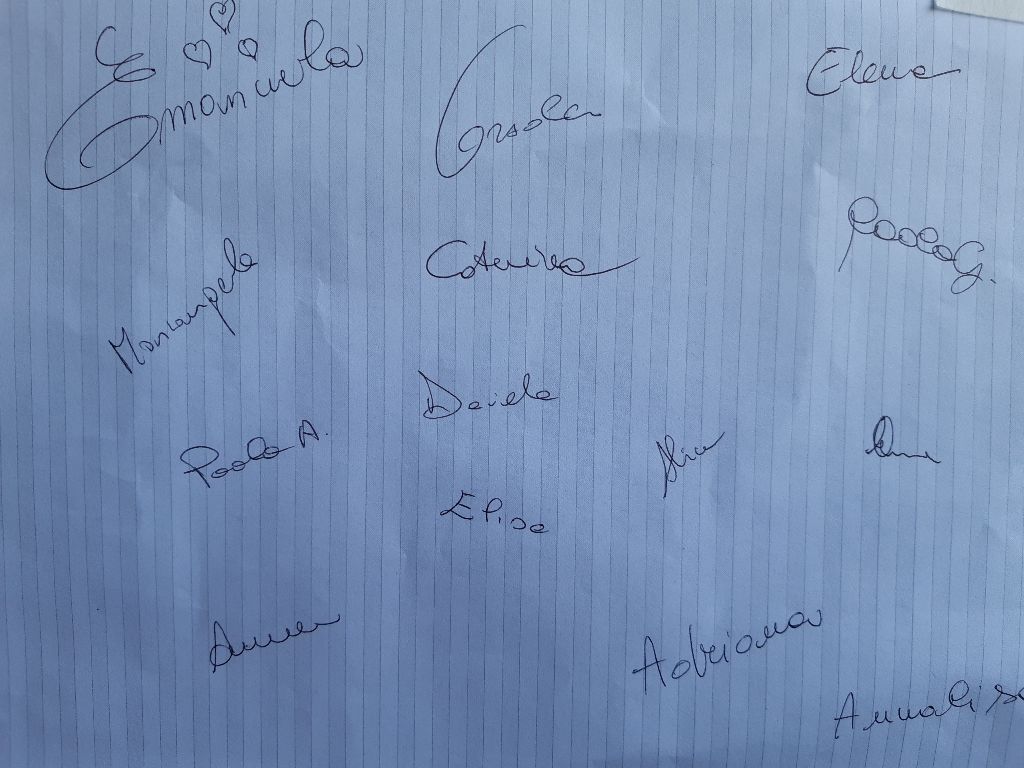 E
Emanuela
Consola
Elena
Mariangela
Caterina
Paola G.
Daniela
Paola A.
Elisa
Adriana
Annalisa